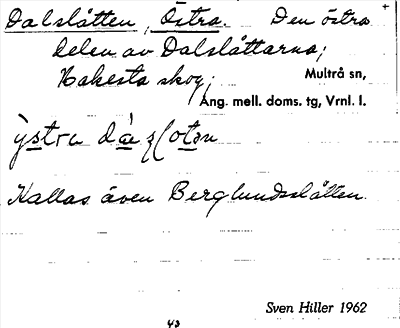 Dalslåtten, Östra. Den östra
delen av Dalslåttarna;
Hakesta skog; Multrå sn,
Ång. mell. doms. tg, Vrnl. l.
Kallas även Berglundsslåtten.
Sven Hiller 1962
43